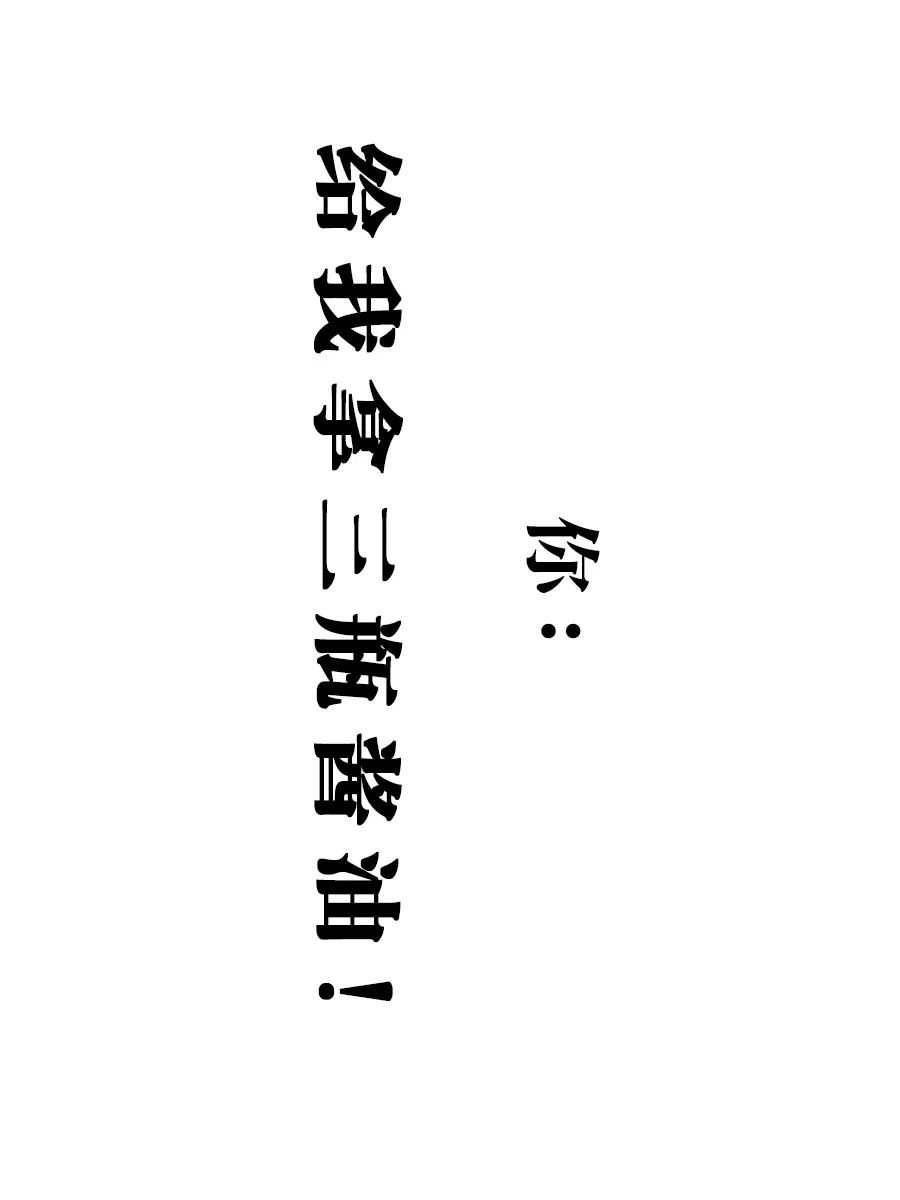 你：
给我拿三瓶酱油！